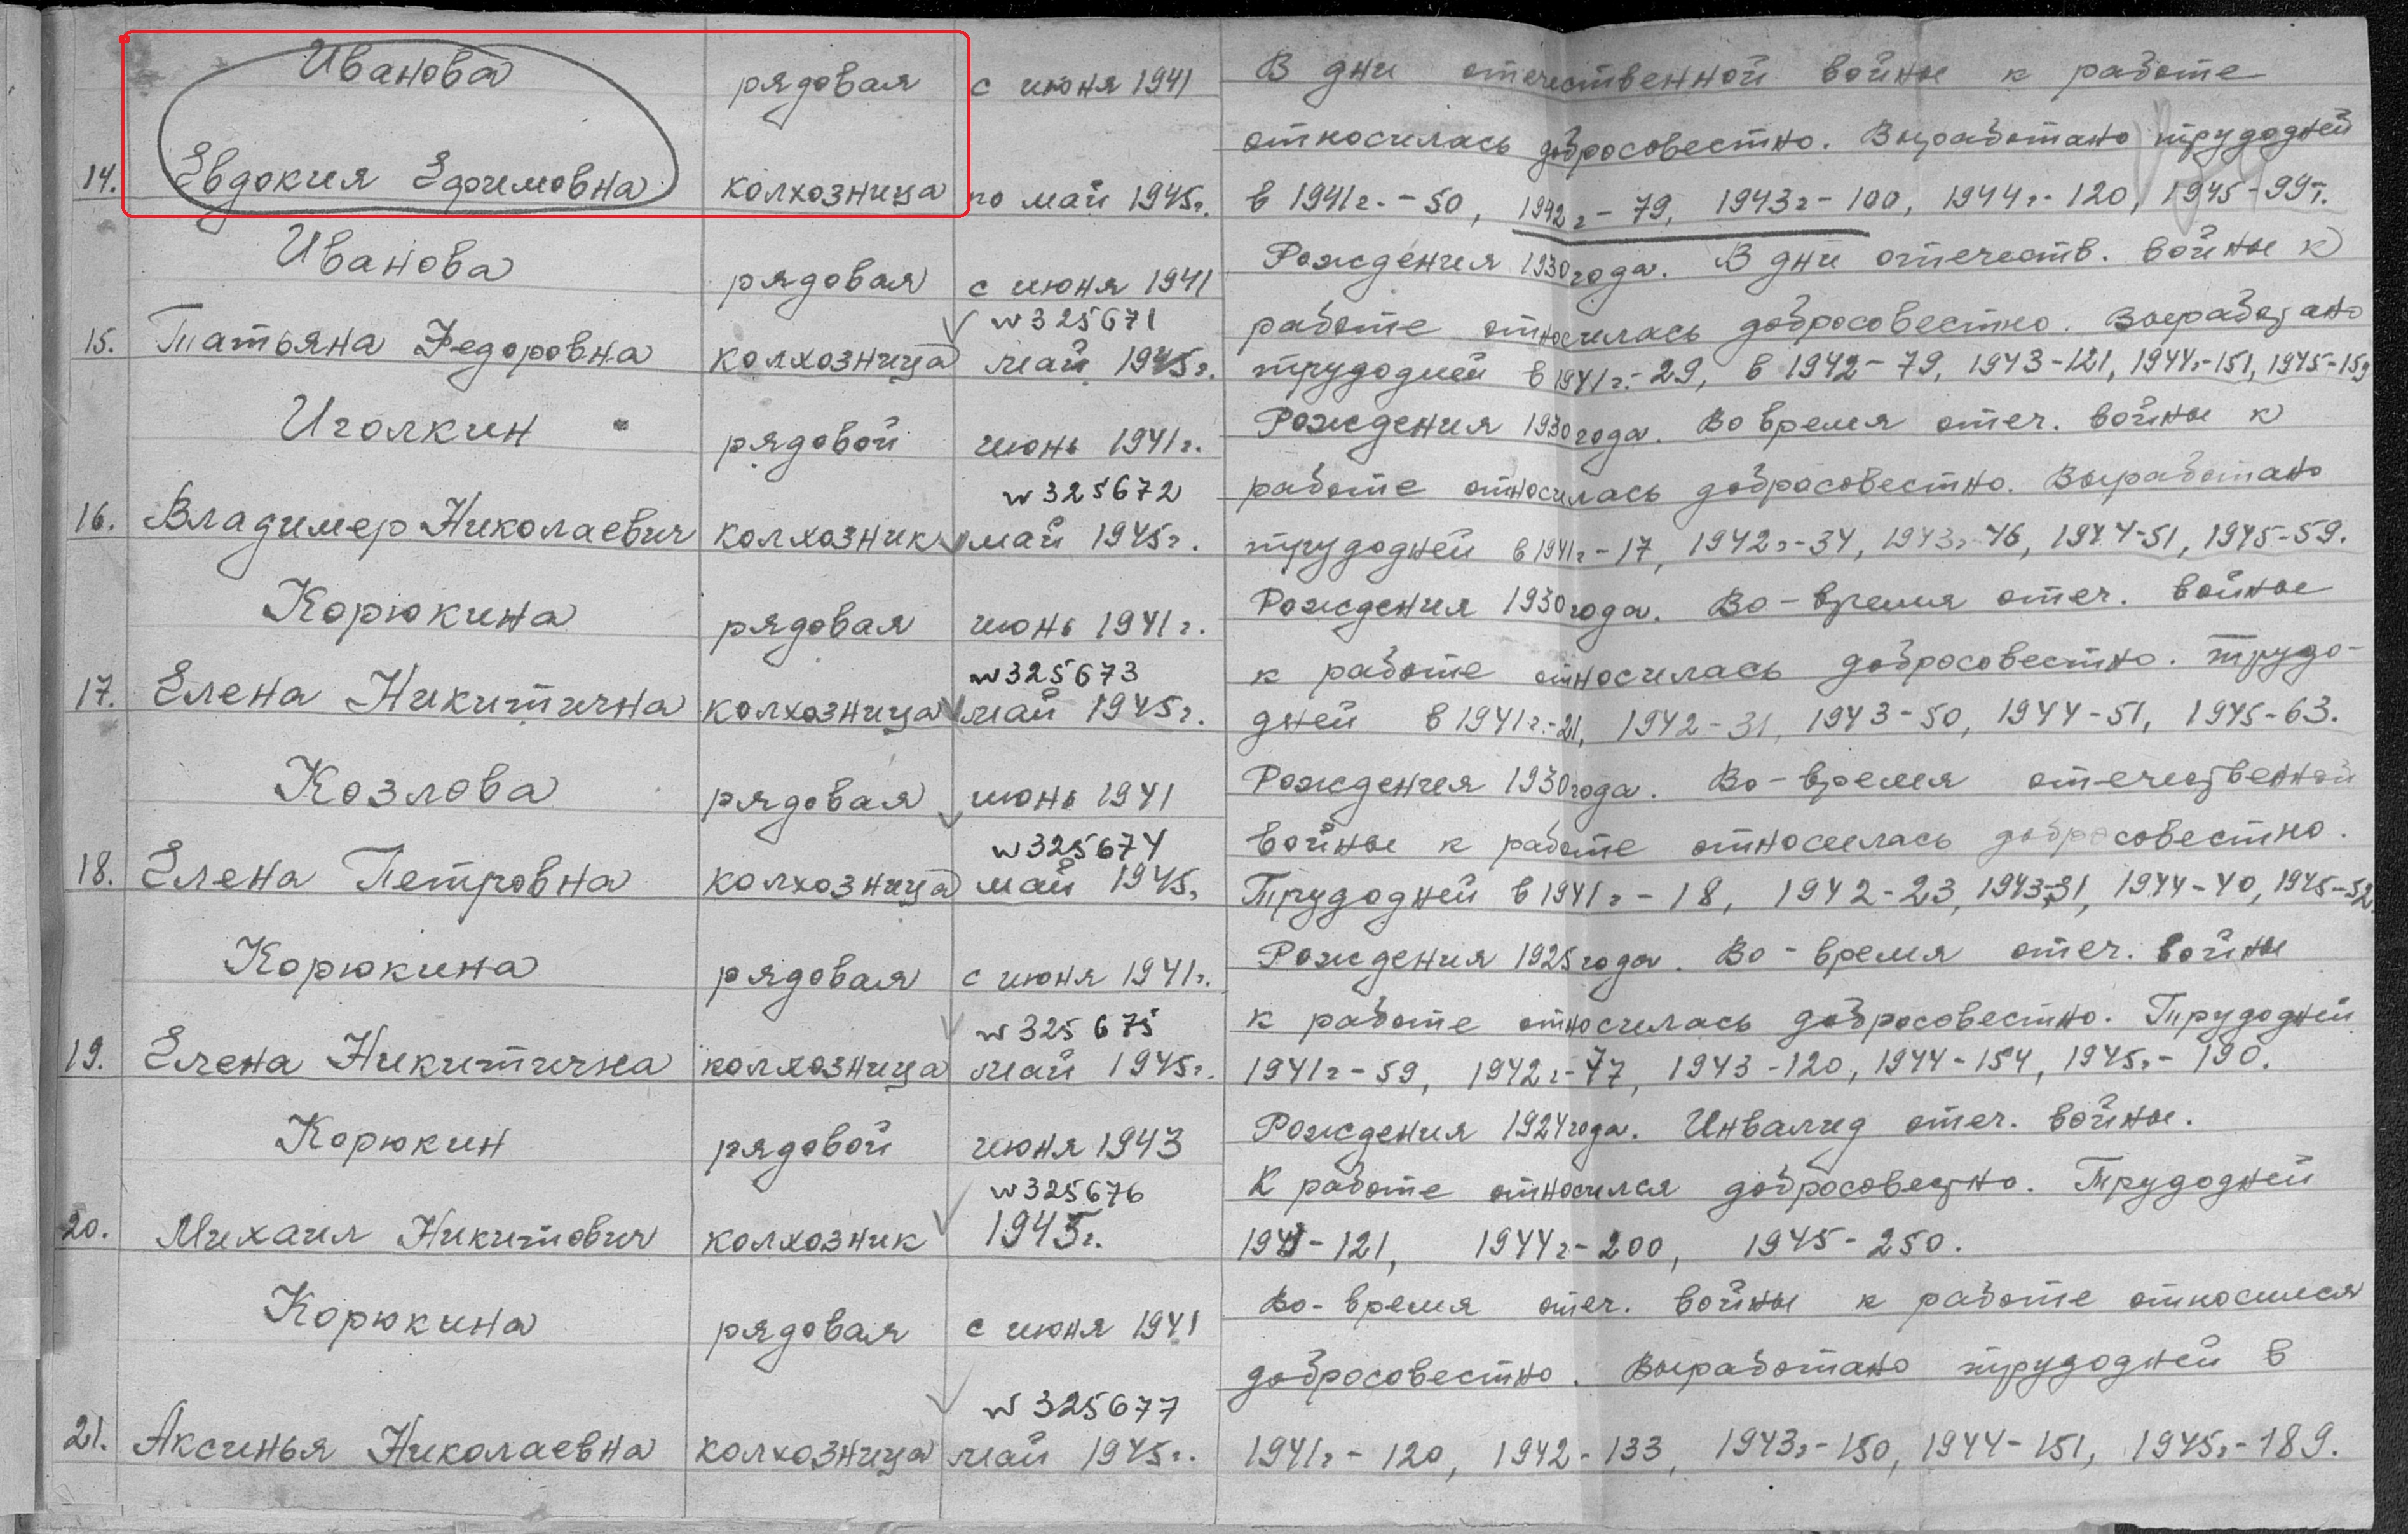 Иванова рядовая с июня 1941 В дни отечественной войны к работе
относилась добросовестно. Выработано трудодней
14. Евдокия Ефимовна колхозница по май 1945г. в 1941г. - 50, 1942г - 79, 1943г - 100, 1944г - 120, 1945 - 99т.
Иванова рядовая с июня 1941 Рождения 1930 года. В дни отечеств. войны к
w325671 работе относилась добросовестно. Выработано
15. Татьяна Федоровна колхозница май 1945г. трудодней в 1941г. - 29, в 1942 - 79, 1943 - 121, 1944г - 151, 1945 - 159
Иголкин рядовой июнь 1941г. Рождения 1930 года. Во время отеч. войны к
w325672 работе относилась добросовестно. Выработано
16. Владимер Николаевич колхозник май 1945г. трудодней в 1941г - 17, 1942г - 34, 1943г 46, 1944 - 51, 1945 - 59.
Корюкина рядовая июнь 1941г. Рождения 1930 года. Во-время отеч. войны
w325673 к работе относилась добросовестно. Трудо-
17. Елена Никитична колхозница май 1945г. дней в 1941г. - 21, 1942 - 31, 1943 - 50, 1944 - 51, 1945 - 63.
Козлова рядовая июнь 1941 Рождения 1930 года. Во-время отечественной
w325674 войны к работе относилась добросовестно.
18. Елена Петровна колхозница май 1945г Трудодней в 1941г - 18, 1942 - 23, 1943 - 31, 1944 - 40, 1945 - 52.
Корюкина рядовая с июня 1941г. Рождения 1925 года. Во-время отеч. войны
w325675 к работе относилась добросовестно. Трудодней
19. Елена Никитична колхозница май 1945г. 1941г - 59, 1942г - 77, 1943 - 120, 1944 - 154, 1945г - 190.
Корюкин рядовой июня 1943 Рождения 1924 года. Инвалид отеч. войны.
w325676 К работе относился добросовестно. Трудодней
20. Михаил Никитович колхозник 1945г. 1943 - 121, 1944г - 200, 1945 - 250.
Корюкина рядовая с июня 1941 Во-время отеч. войны к работе относился
w325677 добросовестно. Выработано трудодней в
21. Аксинья Николаевна колхозница май 1945г. 1941г - 120, 1942 - 133, 1943г - 150, 1944 - 151, 1945г - 189.